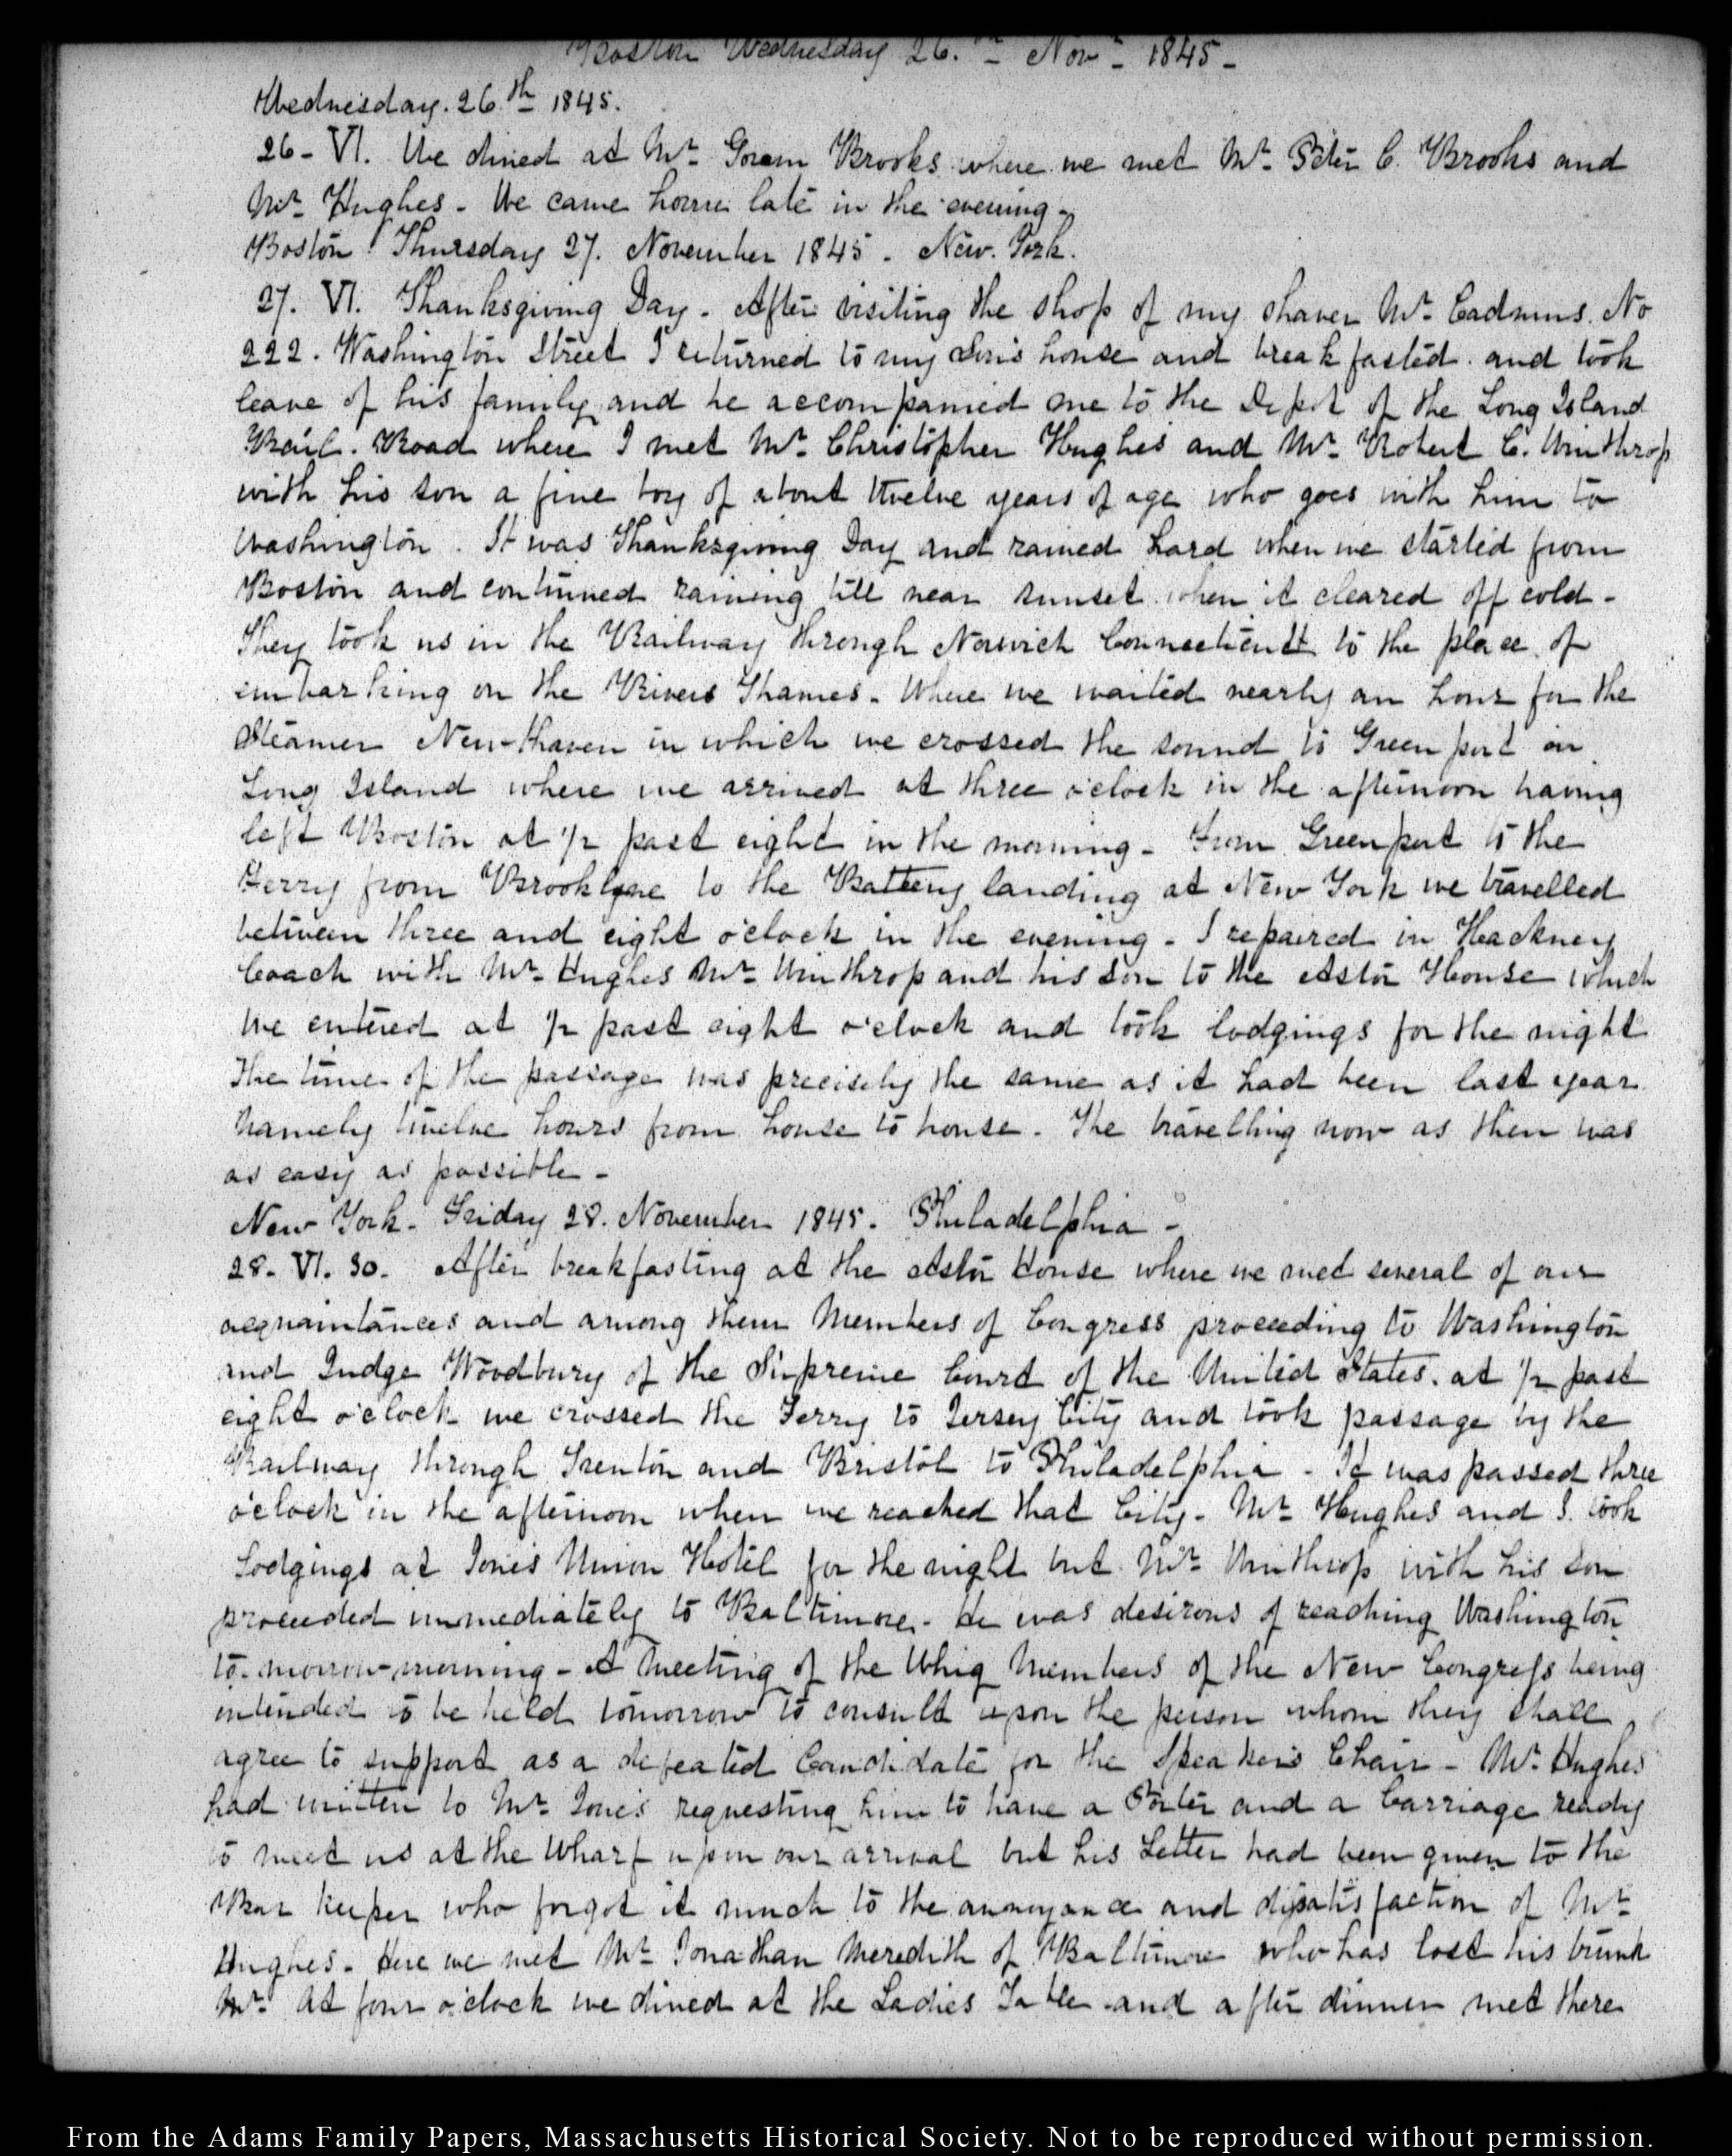 Boston Wednesday 26.th Novr 1845-
Wednesday. 26.th 1845.
26- VI. We dined at Mr Goram Brooks where we met Mr Peter C. Brooks and
Mr Hughes - We came home late in the evening-
Boston Thursday 27. November 1845. New. York.
27. VI. Thanksgiving Day. After visiting the shop of my shaver Mr Cadmus. No
222. Washington Street I returned to my Son's house and breakfasted. and took
leave of his family and he accompanied me to the Depot of the Long Island
Rail. Road where I met Mr Christopher Hughes and Mr Robert C. Winthrop
with his son a fine boy of about twelve years of age who goes with him to
Washington. It was Thanksgiving Day and rained hard when we started from
Boston and continued raining till near sunset when it cleared off cold-
They took us in the Railway through Norwich Connecticutt to the place of
embarking on the Rivers Thames- Where we waited nearly an hour for the
Steamer New-haven in which we crossed the sound to Greenport on
Long Island where we arrived at three o'clock in the afternoon having
left Boston at 1/2 past eight in the morning- From Greenport to the
Ferry from Brooklyne to the Battery landing at New York we travelled
between three and eight o'clock in the evening- I repaired in Hackney
Coach with Mr Hughes Mr Winthrop and his son to the Astor House which
we entered at 1/2 past eight o'clock and took lodgings for the night
The time of the passage was precisely the same as it had been last year
namely twelve hours from house to house. The travelling now as then was
as easy as possible-
New York- Friday 28. November 1845. Philadelphia-
28- VI. 30. After breakfasting at the Astor House where we met several of our
acquaintances and among them Members of Congress proceeding to Washington
and Judge Woodbury of the Supreme Court of the United States. at 1/2 past
eight o'clock we crossed the Ferry to Jersey City and took passage by the
Railway through Trenton and Bristol to Philadelphia- It was passed three
o'clock in the afternoon when we reached that City- Mr Hughes and I. took
Lodgings at Jones Union Hotel for the night but Mr Winthrop with his son
proceeded immediately to Baltimore- He was desirous of reaching Washington
to-morrow-morning- A Meeting of the Whig Members of the New Congress being
intended to be held tomorrow to consult upon the person whom they shall
agree to support as a defeated Candidate for the Speakers Chair- Mr Hughes
had written to Mr Jones requesting him to have a Porter and a Carriage ready
to meet us at the Wharf upon our arrival but his Letter had been given to the
Bar keeper who forgot it much to the annoyance and disatisfaction of Mr
Hughes- Here we met Mr Jonathan Meredith of Baltimore who has lost his trunk
Mr At four o'clock we dined at the Ladies Table and after dinner met there
From the Adams Family Papers, Massachusetts Historical Society. Not to be reproduced without permission.